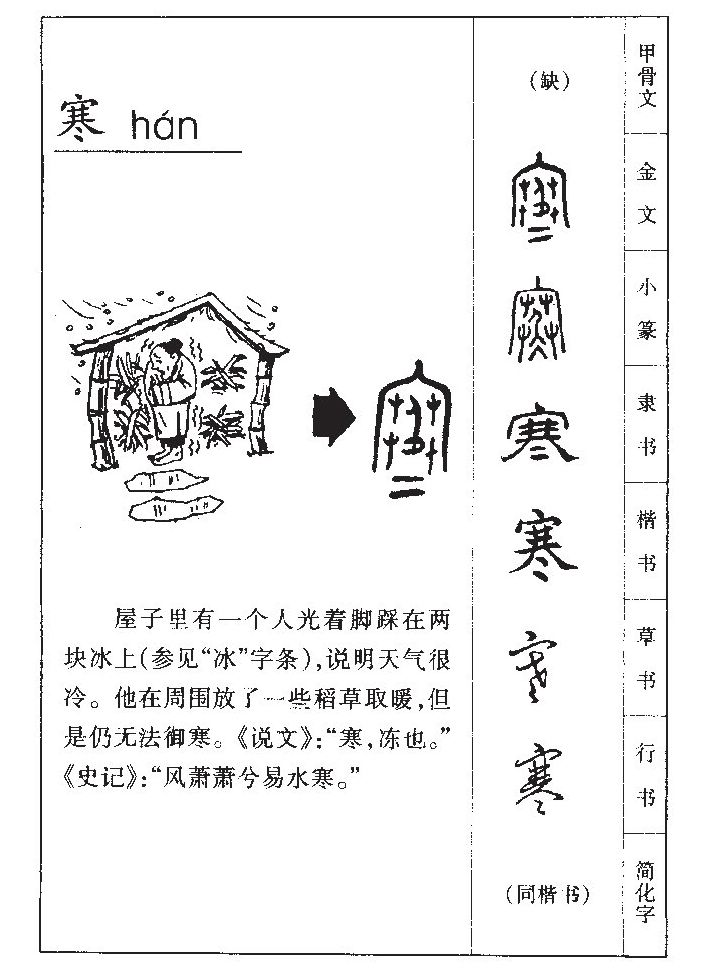 寒 hán
屋子里有一个人光着脚踩在两
块冰上(参见“冰”字条),说明天气很
冷。他在周围放了一些稻草取暖,但
是仍无法御寒。《说文》:“寒,冻也。”
《史记》:“风萧萧兮易水寒。”
(缺)
甲骨文
寒
金文
寒
小篆
寒
隶书
寒
楷书
寒
草书
寒
行书
(同楷书)
简化字